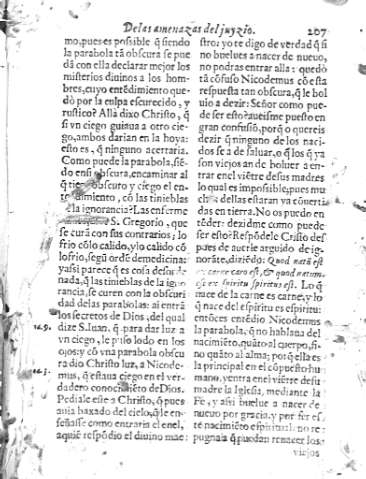 De las amenazas del juyzio. 207
mo, pues es possible q̃ siendo
la parabola tã obscura se pue
dã con ella declarar mejor los
misterios diuinos a los hom-
bres, cuyo entẽdimiento que-
dò por la culpa escurecido, y
rustico? Allà dixo Christo, q̃
si vn ciego guiaua a otro cie-
go, ambos darian en la hoya:
esto es, q̃ ninguno acertaria.
Como puede la parabola, siẽ-
do en si obscura, encaminar al
q̃ tiene obscuro y ciego el en-
tendimiento, cõ las tinieblas
la ignorancia? Las enferme
S. Gregorio, que
se curã con sus contrarios; lo
frio cõ lo calido, y lo calido cõ
lo frio, segũ ordẽ de medicina:
y assi parece q̃ es cosa desor de
nada, q̃ las tinieblas de la igno
rancia, se curen con la obscuri
dad de las parabolas: ai entrã
los secretos de Dios, del qual
dize S. Iuan, q̃ para dar luz a
vn ciego, le puso lodo en los
ojos: y cõ vna parabola obscu
ra dio Christo luz, a Nicode-
mus, q̃ estaua ciego en el ver-
dadero conocimiẽto de Dios.
Pediale este a Christo, q̃ pues
auia baxado del cielo, q̃ le en-
señasse como entraria el enel,
a quiẽ respõdio el diuino mae:
Io. 9.
Io. 3.
stro: yo te digo de verdad q̃ si
no buelues a nacer de nueuo,
no podras entrar alla: quedò
tã cõfuso Nicodemus cõ esta
respuesta tan obscura, q̃ le bol
uio a dezir: Señor como pue-
de ser esto? aueisme puesto en
gran confusiõ, porq̃ o quereis
dezir q̃ ninguno de los naci-
dos se a de saluar, o q̃ los q̃ ya
son viejos an de boluer a en-
trar enel viẽtre de sus madres
lo qual es impossible, pues mu
chas dellas estaran ya cõuerti
das en tierra. No os puedo en
tẽder: dezidme como puede
ser esto? Respõdele Cristo des
pues de auerle arguido de ig-
norãte, diziẽdo: Quod natũ est
ex carne caro est, & quod natum
est ex spiritu spiritus est. Lo q̃
nace de la carne es carne, y lo
q̃ nace del espiritu es espiritu:
entonces entẽdio Nicodemus
la parabola, q̃ no hablaua del
nacimiẽto, quãto al cuerpo, si-
no quãto al alma; por q̃ ella es
la principal en el cõpuesto hu-
mano, y entra en el viẽtre de su
madre la Iglesia, mediante la
Fè, y assi buelue a nacer de
nueuo por gracia, y por ser es
te nacimiẽto espiritual, no re-
pugna a q̃ puedan renacer los
viejos